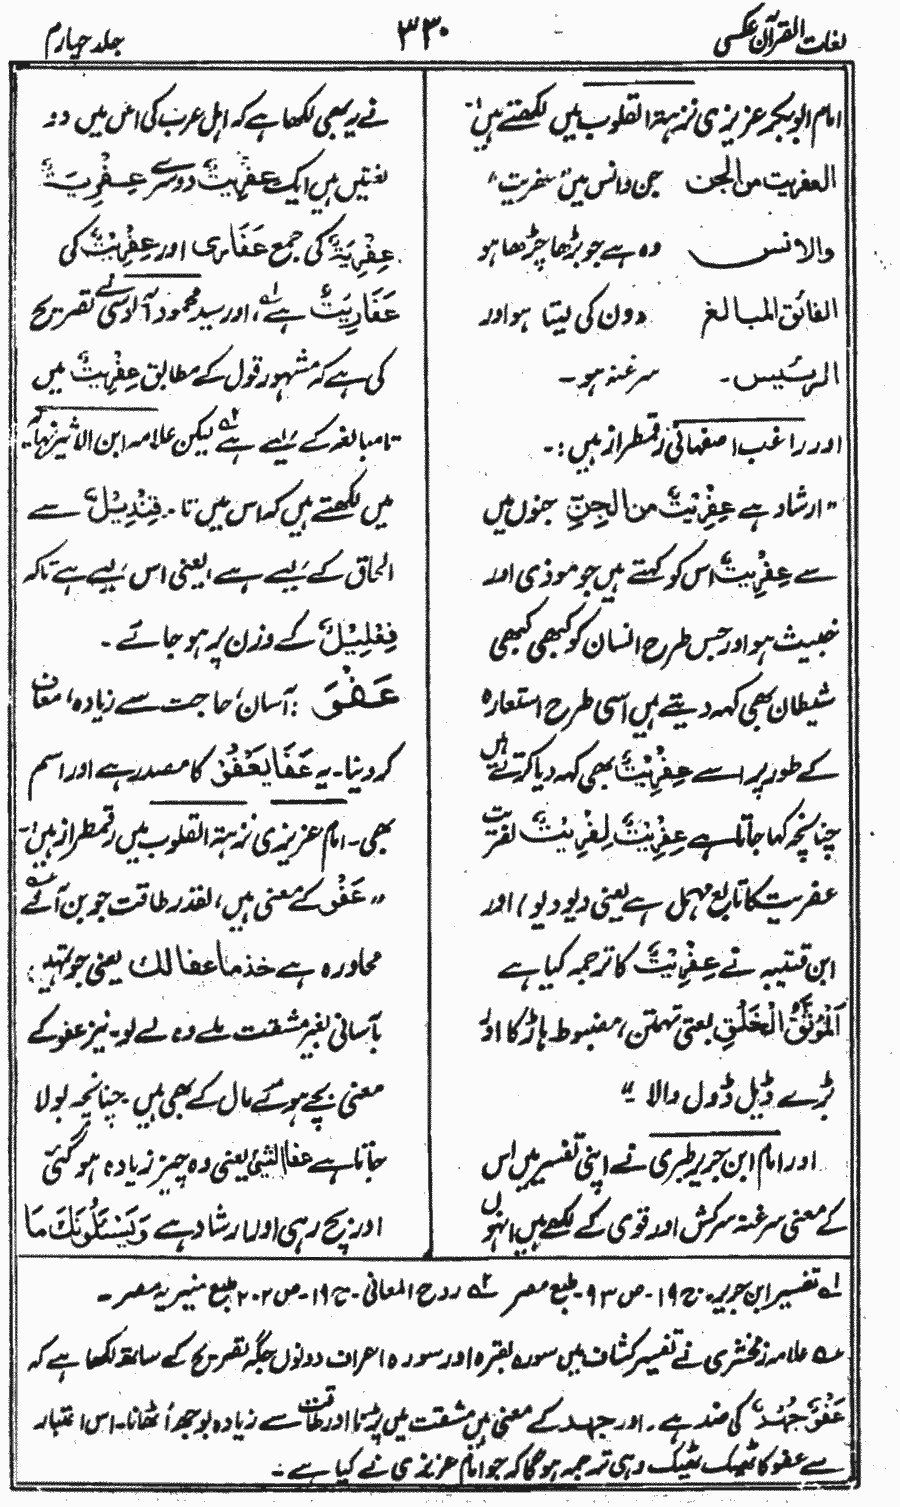 لغات القرآن عکسی
۳۳۰
جلد چہارم
امام ابو بکر عزیزی نزہۃ القلوب میں لکھتے ہیں:
العفریت من الجن جن وانس میں عفریت"
والانس وہ ہے جو بڑھا چڑھا ہو
الفائق المبالغ دون کی لیتا ہو اور
الرئیس۔ سرغنہ ہو۔
اور راغب اصفہانی رقمطراز ہیں:۔
"ارشاد ہے عِفْرِیْتٌ من الجِنِّ جنوں میں
سے عِفْرِیتٌ اس کو کہتے ہیں جو موذی اور
خبیث ہو اور جس طرح انسان کو کبھی کبھی
شیطان بھی کہہ دیتے ہیں اسی طرح استعارہ
کے طور پر اسے عِفْرِیْتٌ بھی کہہ دیا کرتے ہیں
چنانچہ کہا جاتا ہے عِفْرِیْتٌ نِفْرِیْتٌ نفریت
عفریت کا تابع مہمل ہے یعنی دیو دیو) اور
ابن قتیبہ نے عِفْرِیْتٌ کا ترجمہ کیا ہے
اَلْمُوَثَّقُ الْخَلْقِ یعنی تہمتن، مضبوط ہاڑ کا اور
بڑے ڈیل ڈول والا"
اور امام ابن جریر طبری نے اپنی تفسیر میں اس
کے معنی سرغنہ سرکش اور قوی کے لکھے ہیں انہوں
نے یہ بھی لکھا ہے کہ اہل عرب کی اس میں دو
لغتیں ہیں ایک عِفْرِیتٌ دوسرے عِفْرِیَۃٌ
عِفْرِیَۃٌ کی جمع عَفَارِی اور عِفْرِیْتٌ کی
عَفَارِیْتُ ہے، اور سید محمود آلوسی نے تصریح
کی ہے کہ مشہور قول کے مطابق عِفْرِیتٌ میں
تا مبالغہ کے لیے ہے لیکن علامہ ابن الاثیر نہایہ
میں لکھتے ہیں کہ اس میں تا۔ قِنْدِیْلٌ سے
الحاق کے لیے ہے یعنی اس لیے ہے تاکہ
فِعْلِیْلٌ کے وزن پر ہو جائے۔
عَفْوَ : آسان، حاجت سے زیادہ، معاف
کر دینا۔ یہ عَفَا یَعْفُوْ کا مصدر ہے اور اسم
بھی۔ امام عزیزی نزہۃ القلوب میں رقمطراز ہیں:۔
"عَفْو کے معنی ہیں، بقدر طاقت جو بن آئے
محاورہ ہے خذ ما عفا لك یعنی جو تمہیں
بآسانی بغیر مشقت ملے وہ لے لو۔ نیز عفو کے
معنی بچے ہوئے مال کے بھی ہیں۔ چنانچہ بولا
جاتا ہے عفا الشئ یعنی وہ چیز زیادہ ہو گئی
اور بچ رہی اور ارشاد ہے وَیَسْئَلُوْنَكَ مَا
۱؎ تفسیر ابن جریر۔ ج ۱۹۔ ص ۹۳۔ طبع مصر ۲؎ روح المعانی۔ ج ۱۹۔ ص ۲۰۲ طبع منیریہ مصر۔
۳؎ علامہ زمخشری نے تفسیر کشاف میں سورہ بقرہ اور سورہ اعراف دونوں جگہ تصریح کے ساتھ لکھا ہے کہ
عَفْوٌ جُہْدٌ کی ضد ہے۔ اور جہد کے معنی ہیں مشقت میں پڑنا اور طاقت سے زیادہ بوجھ اُٹھانا۔ اس اعتبار
سے عفو کا ٹھیک ٹھیک وہی ترجمہ ہوگا کہ جو امام عزیزی نے کیا ہے۔